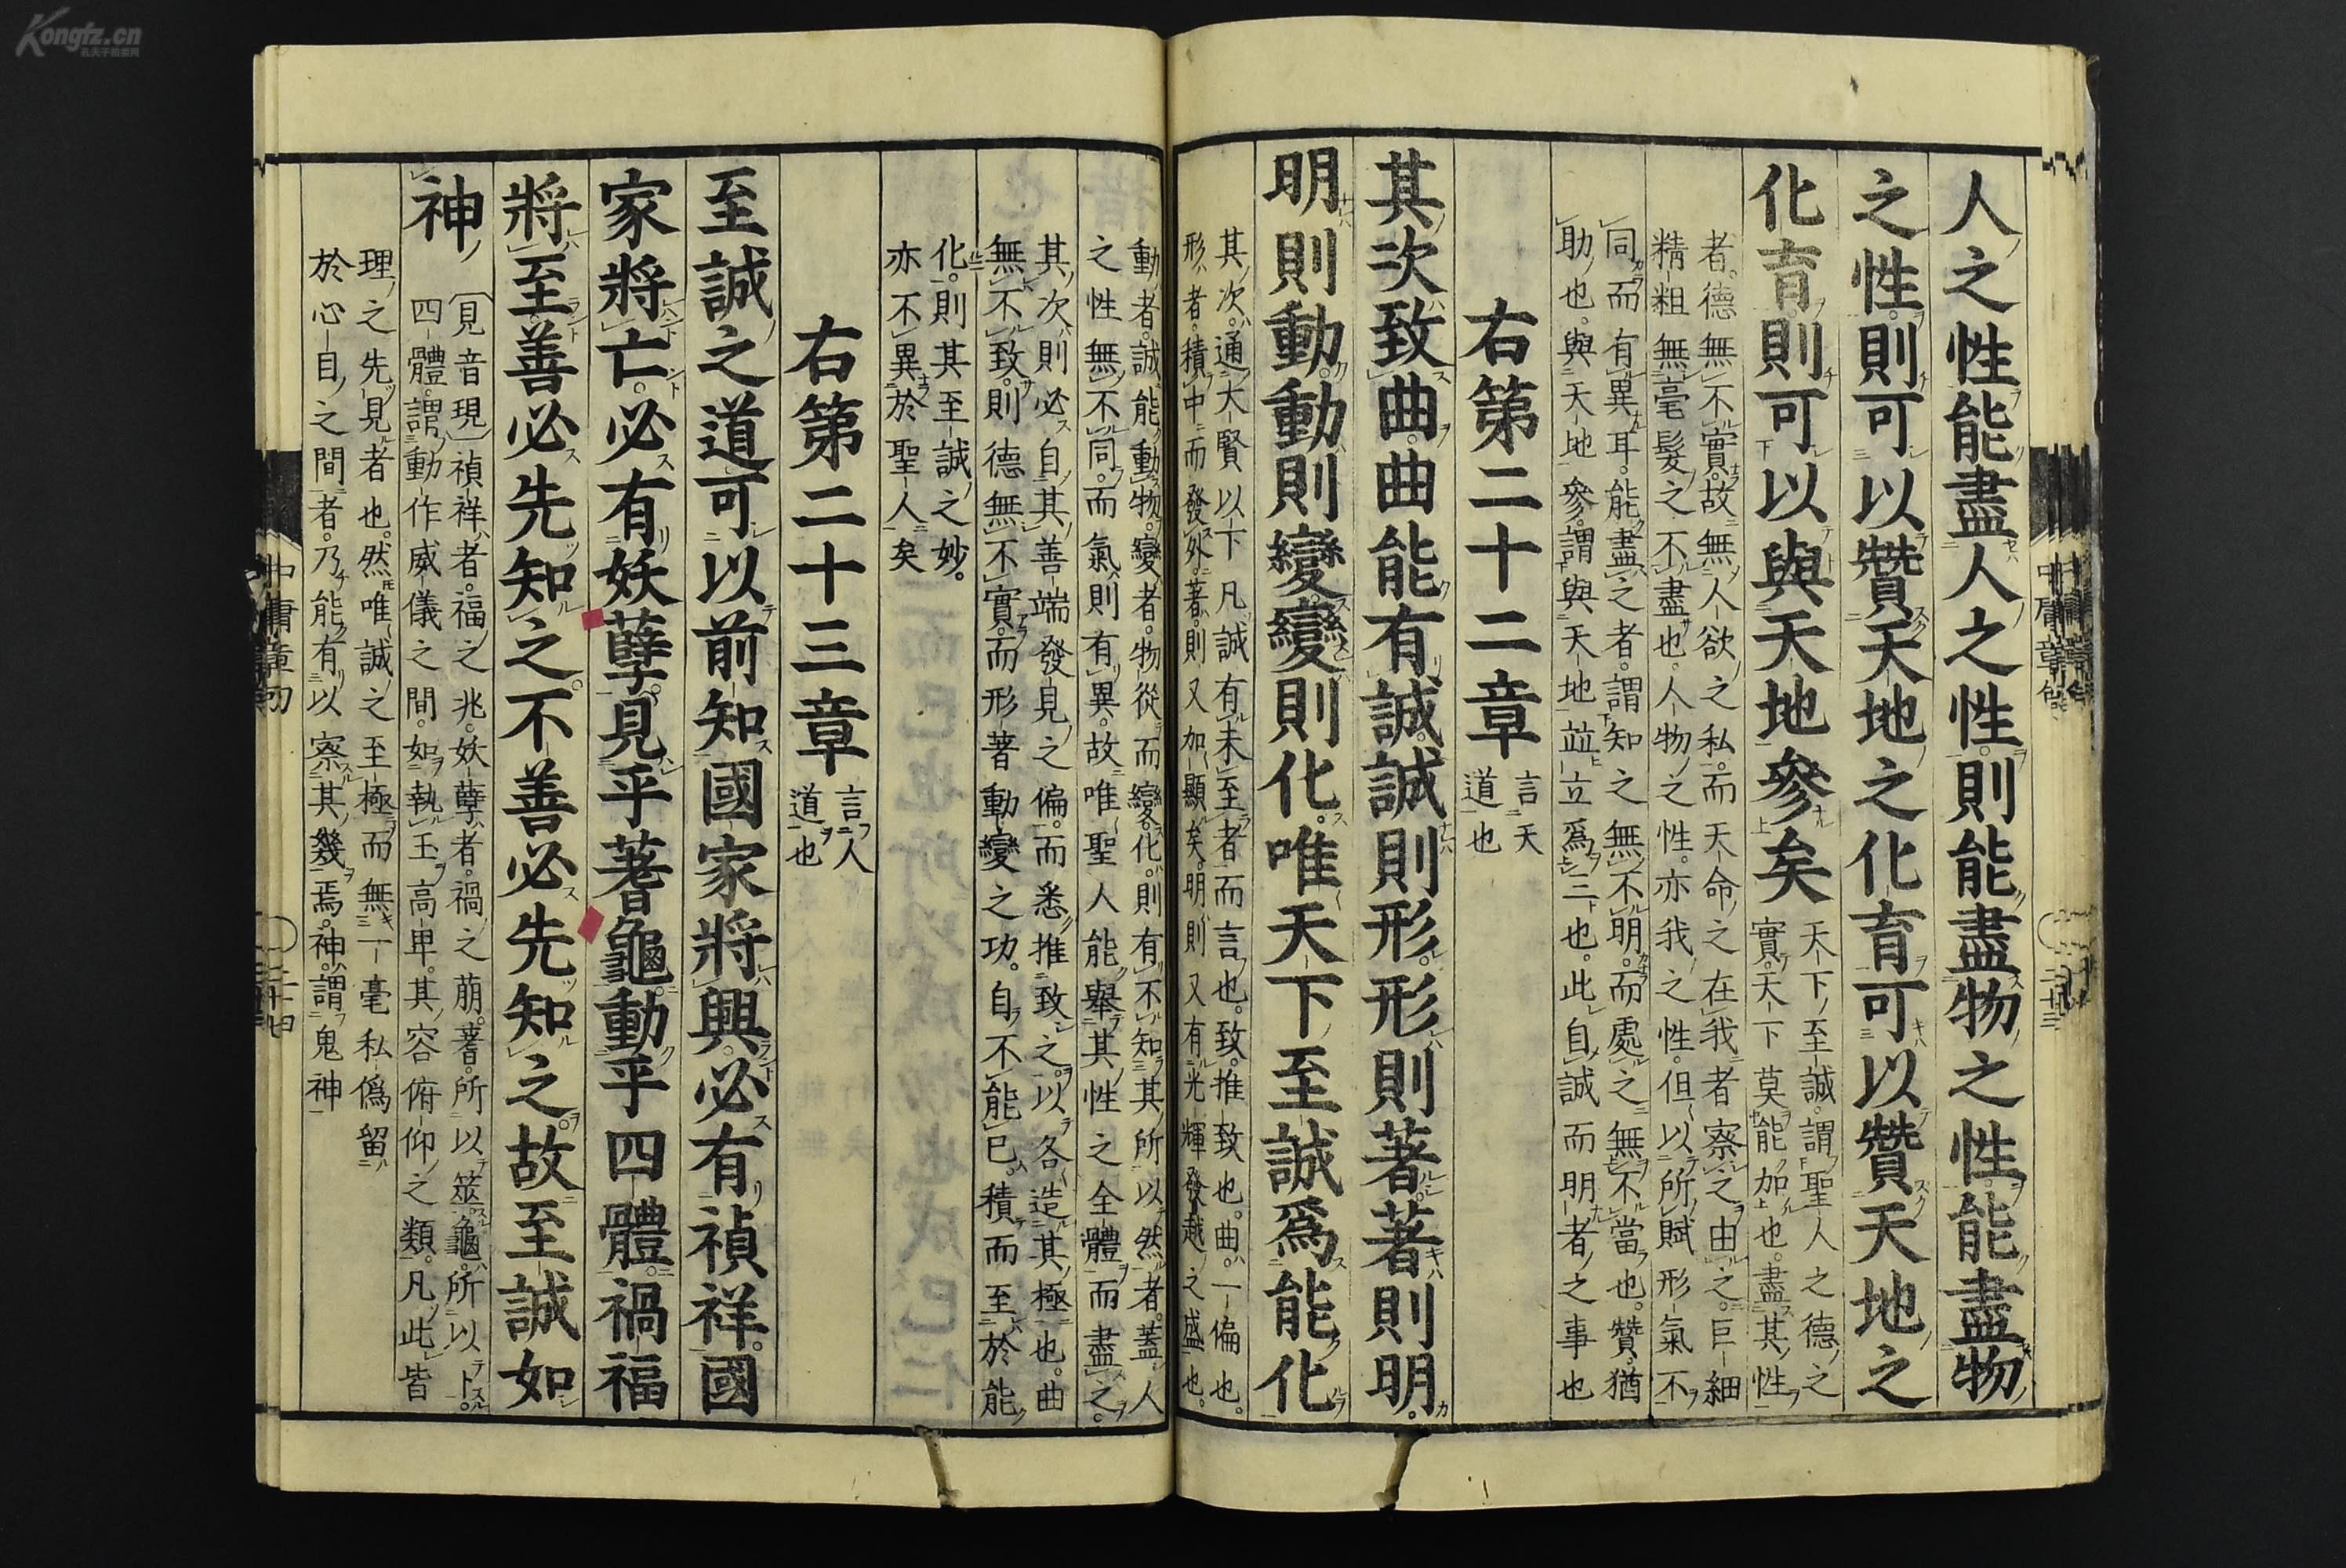 人之性能盡人之性則能盡物之性能盡物
之性則可以贊天地之化育可以贊天地之
化育則可以與天地參矣
天下至誠謂聖人之德之
實天下莫能加也盡其性
者。德無不實。故無人欲之私。而天命之在我者察之由之。巨細
精粗無毫髮之不盡也。人物之性。亦我之性。但以所賦形氣不
同。而有異耳。能盡之者。謂知之無不明。而處之無不當也。贊。猶
助也。與天地參。謂與天地竝立爲三也。此自誠而明者之事也
右第二十二章
言天
道也
其次致曲。曲能有誠。誠則形。形則著。著則明。
明則動。動則變。變則化。唯天下至誠爲能化
其次。通大賢以下凡誠有未至者而言也。致。推致也。曲。一偏也。
形者。積中而發外。著。則又加顯矣。明。則又有光輝發越之盛也。
動者。誠能動物。變者。物從而變。化。則有不知其所以然者。蓋人
之性無不同。而氣則有異。故唯聖人能舉其性之全體而盡之。
其次則必自其善端發見之偏。而悉推致之。以各造其極也。曲
無不致。則德無不實。而形著動變之功。自不能已。積而至於能
化。則其至誠之妙。
亦不異於聖人矣
右第二十三章
言人
道也
至誠之道可以前知國家將興必有禎祥。國
家將亡。必有妖孽。見乎蓍龜。動乎四體。禍福
將至善必先知之。不善必先知之。故至誠如
神
見音現禎祥者。福之兆。妖孽者。禍之萠。蓍。所以筮。龜。所以卜。
四體。謂動作威儀之間。如執玉高卑。其容俯仰之類。凡此皆
理之先見者也。然唯誠之至極而無一毫私僞留
於心目之間者。乃能有以察其幾焉。神。謂鬼神
中庸章句
二十三
中庸章句
二十四
Kongfz.cn